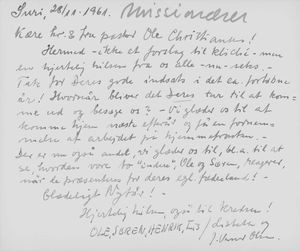 Suri, 28/11-1961. Missionærer
Kære hr. & fru pastor Ole Christiansen!
Hermed - ikke et forslag til kliché - men
en hjertelig hilsen fra os alle - nu - seks.
Tak for Deres gode indsats i det ca. forløbne
år! Hvornår bliver det Deres tur til at kom-
me ud og besøge os? - Vi glæder os til at
komme hjem næste efterår og på en fornem-
melse at arbejdet på hjemmefronten.
Der er nu også andet, vi glæder os til, bl.a. til at
se hvordan vore to "indere", Ole og Søren, reagerer,
når de præsenteres for deres egl. fædreland! -
Glædeligt Nytår! -
Hjertelig hilsen, også til kredsen!
OLE, SØREN, HENRIK, Lis / Lisbeth og